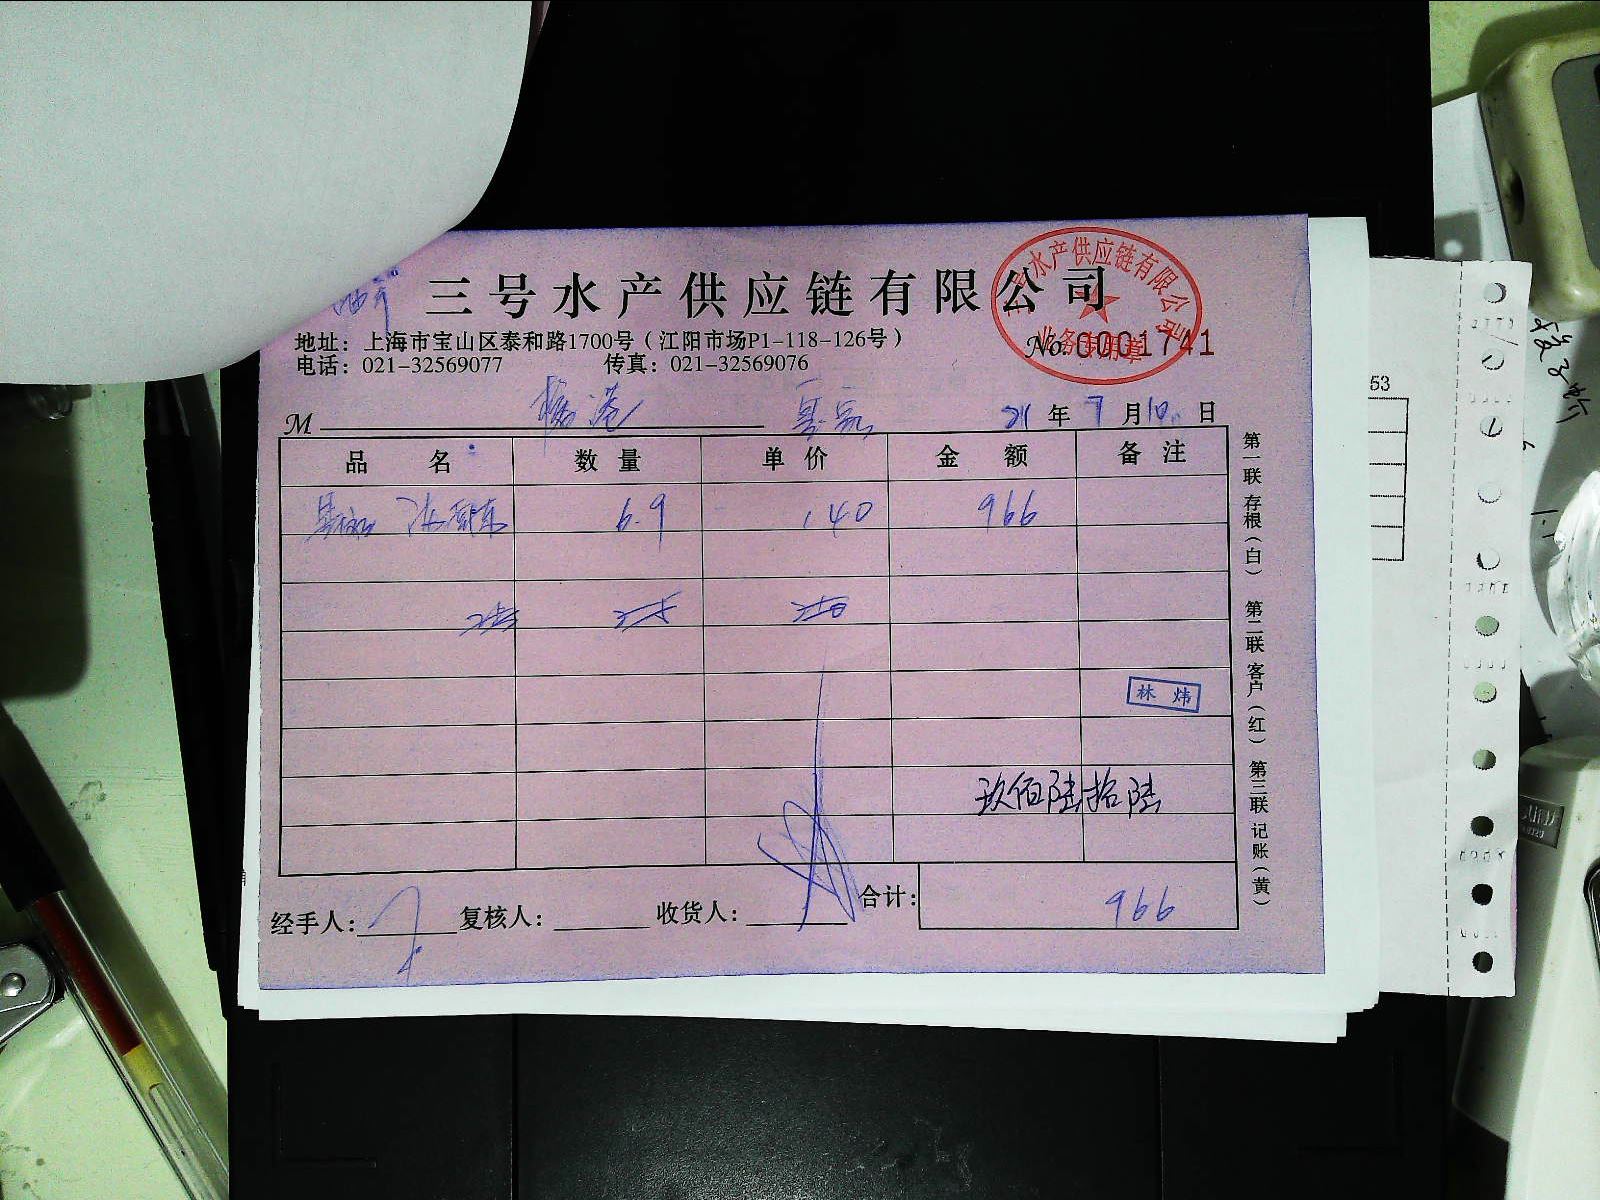 三号水产供应链有限公司
水产供应链有限公司
业务专用章
地址：上海市宝山区泰和路1700号（江阳市场P1-118-126号）
No. 0001741
电话：021-32569077 传真：021-32569076
M 21 年 7 月 10 日
品名 数量 单价 金额 备注
6.9 140 966
林炜
玖佰陆拾陆
经手人： 复核人： 收货人： 合计： 966
第一联 存根（白） 第二联 客户（红） 第三联 记账（黄）
53